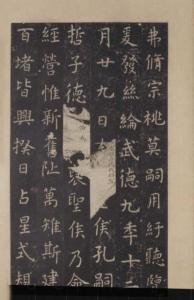 弗脩宗祧莫嗣用紆聽覽
爰發絲綸武德九年十二
月廿九日侯孔嗣
哲子德褒聖侯乃命
經營惟新舊阯萬雉斯建
百堵皆興揆日占星式規